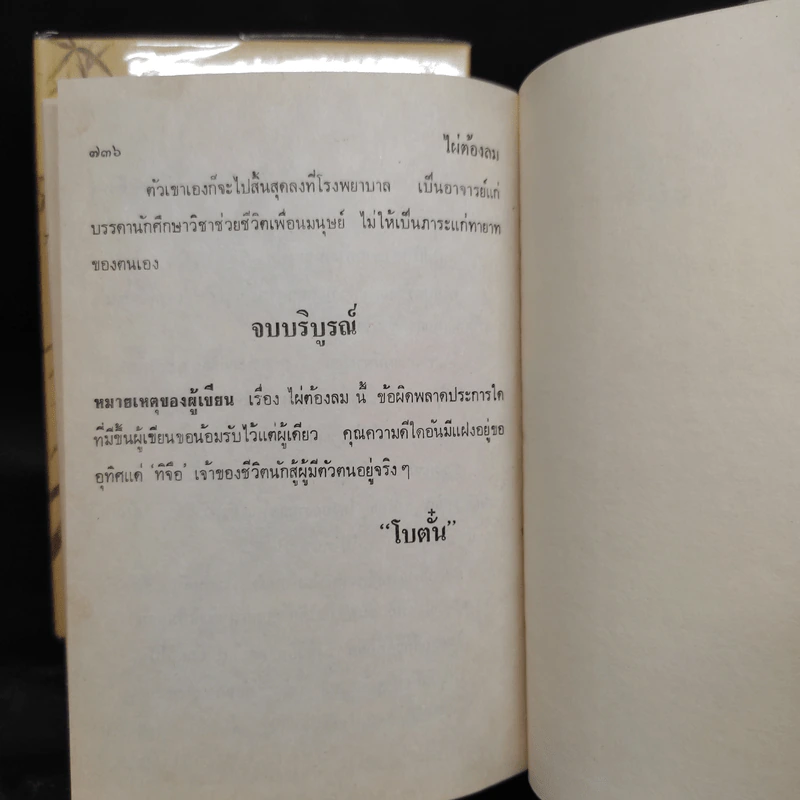 ๗๓๖ ไผ่ต้องลม
ตัวเขาเองก็จะไปสิ้นสุดลงที่โรงพยาบาล เป็นอาจารย์แก่
บรรดานักศึกษาวิชาช่วยชีวิตเพื่อนมนุษย์ ไม่ให้เป็นภาระแก่ทายาท
ของตนเอง
จบบริบูรณ์
หมายเหตุของผู้เขียน เรื่อง ไผ่ต้องลม นี้ ข้อผิดพลาดประการใด
ที่มีขึ้นผู้เขียนขอน้อมรับไว้แต่ผู้เดียว คุณความดีใดอันมีแฝงอยู่ขอ
อุทิศแด่ ‘ทิจือ’ เจ้าของชีวิตนักสู้ผู้มีตัวตนอยู่จริง ๆ
“โบตั๋น”